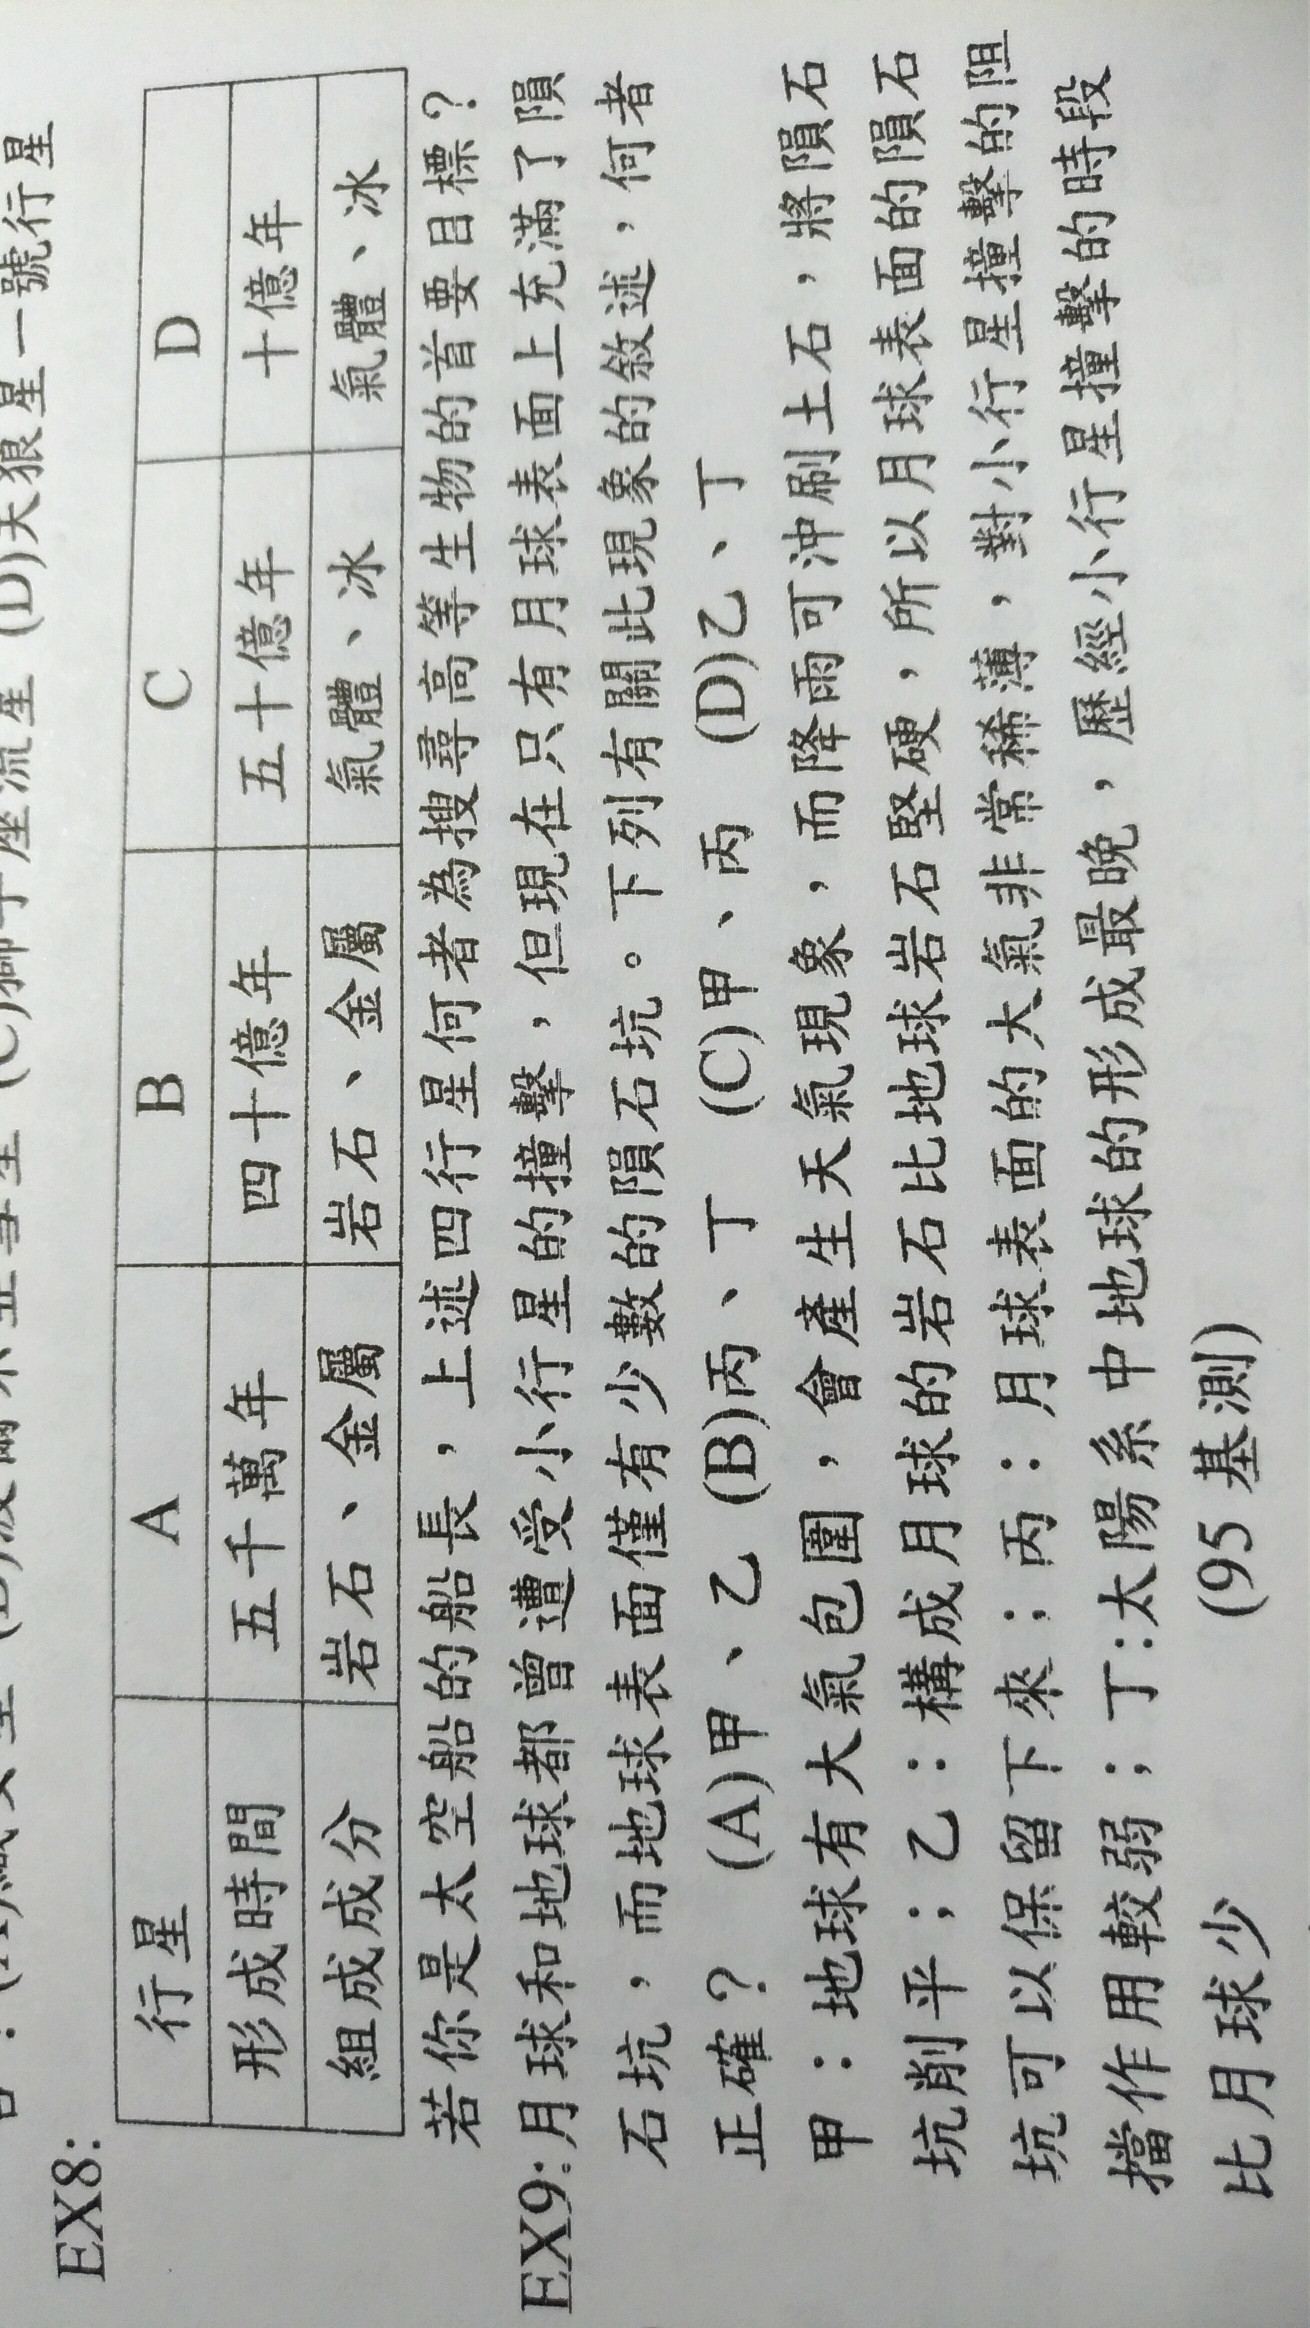 (C)獅子座流星 (D)天狼星一號行星
EX8:
行星 A B C D
形成時間 五千萬年 四十億年 五十億年 十億年
組成成分 岩石、金屬 岩石、金屬 氣體、冰 氣體、冰
若你是太空船的船長，上述四行星何者為搜尋高等生物的首要目標？
EX9:月球和地球都曾遭受小行星的撞擊，但現在只有月球表面上充滿了隕
石坑，而地球表面僅有少數的隕石坑。下列有關此現象的敘述，何者
正確？ (A)甲、乙 (B)丙、丁 (C)甲、丙 (D)乙、丁
甲：地球有大氣包圍，會產生天氣現象，而降雨可沖刷土石，將隕石
坑削平；乙：構成月球的岩石比地球岩石堅硬，所以月球表面的隕石
坑可以保留下來；丙：月球表面的大氣非常稀薄，對小行星撞擊的阻
擋作用較弱；丁:太陽系中地球的形成最晚，歷經小行星撞擊的時段
比月球少 (95 基測)